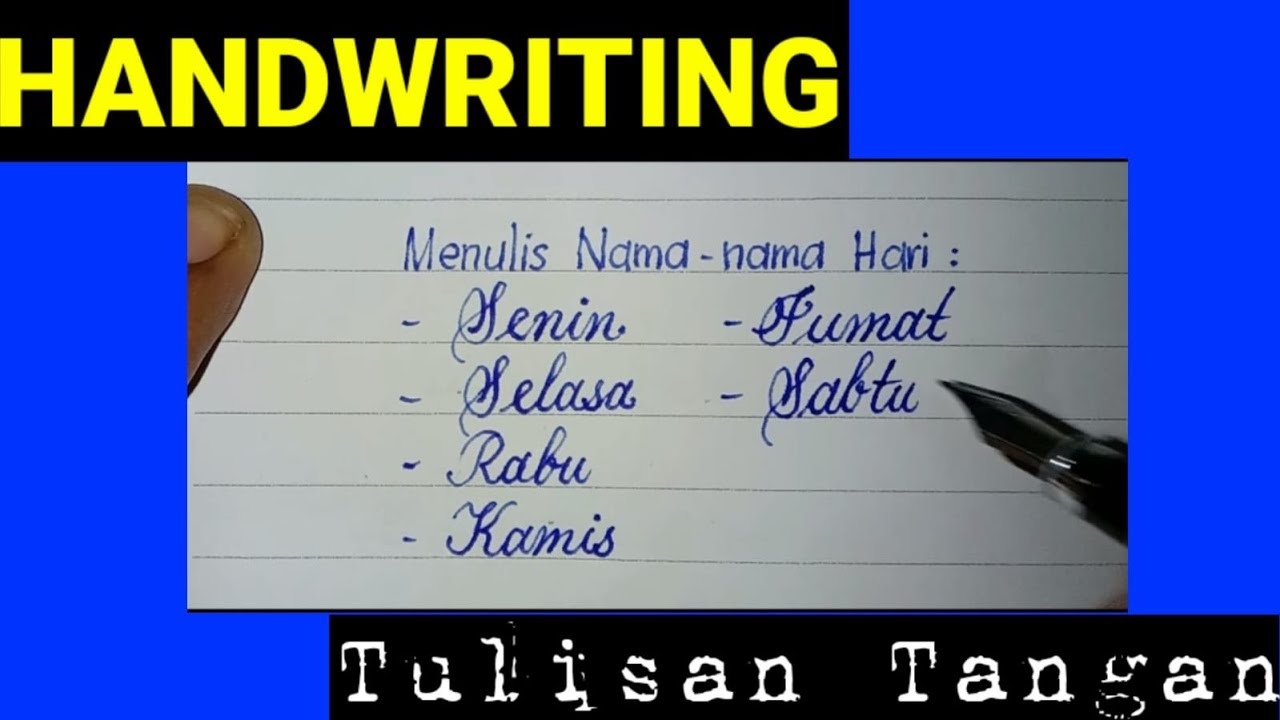 HANDWRITING
Menulis Nama-nama Hari :
- Senin
- Selasa
- Rabu
- Kamis
- Jumat
- Sabtu
Tulisan Tangan